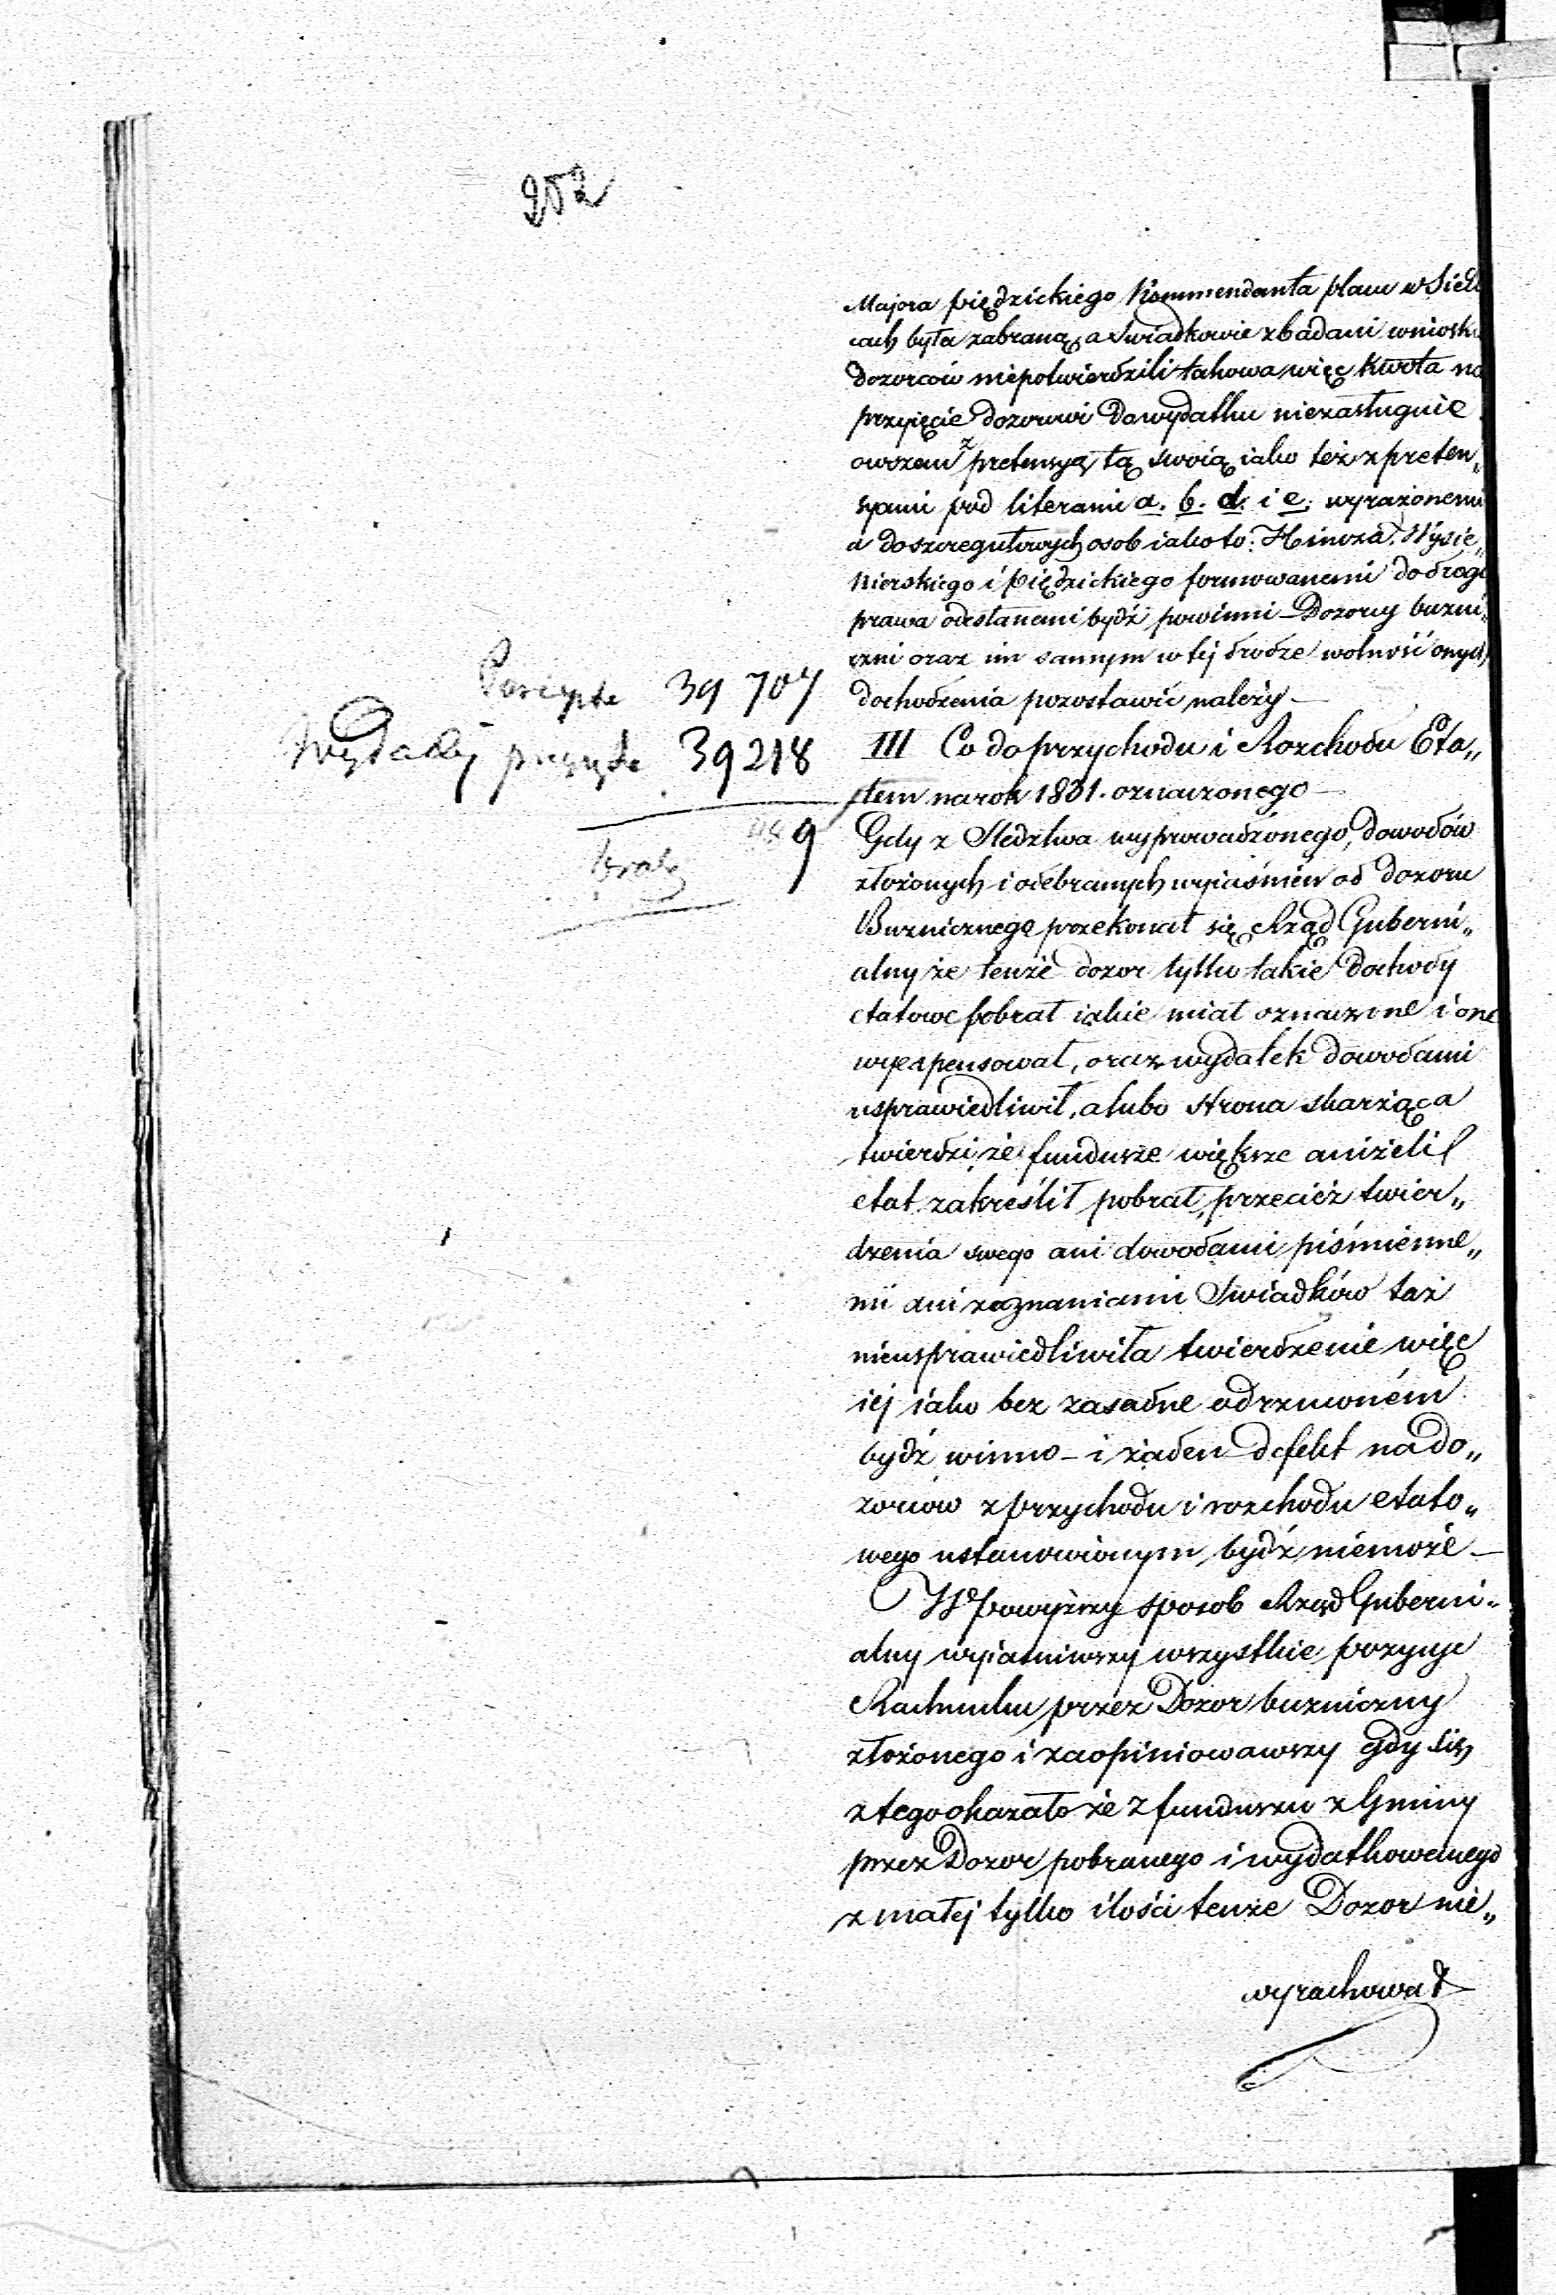 252
Majora piędzickiego Kommendanta placu w Siedl
cach była zabraną, a Swiadkowie zbadani wniosku
dozorców niepotwierdzili takowa więc kwota na
przyięcie dozorowi Dowydatku niezasługuie
owszem z pretensyą tą swoią iako też z preten„
syami pod literami a. b. d. i e. wyrażonemi
a do szczegułowych osob iako to: Hincza, Wysie„
nierskiego i piędzickiego formowanemi do drogi
prawa odesłanemi bydź powinni – Dozorcy buzni„
czni oraz im samym w tej drodze wolność onych
dochodzenia pozostawić należy –
Percepta 39 707
Wydatky przyięte 39218
489
brak
III Co do przychodu i Rozchodu Eta„
tem na rok 1831. oznaczonego –
Gdy z Sledztwa wyprowadzonego, dowodów
złożonych i odebranych wyiaśnień od dozoru
Buznicznego przekonał się Rząd Guberni„
alny że tenże dozor tylko takie Dochody
etatowe pobrał iakie miał oznaczone i one
wyexpensował, oraz wydatek dowodami
usprawiedliwił, a lubo strona skarżąca
twierdzi że fundusze większe aniżeli
etat zakreślił pobrał, przecież twier„
dzenia swego ani dowodami piśmienne„
mi ani zeznaniami Swiadków taż
nieusprawiedliwiła twierdzenie więc
iej iako bez zasadne odrzuconém
bydź winno – i żaden defekt na do„
zorców z przychodu i rozchodu etato„
wego ustanowionym bydź niemoże –
W powyższy sposob Rząd Guberni„
alny wyiaśniwszy wszystkie pozycye
Rachunku przez Dozor buzniczny
złożonego i zaopiniowawszy gdy się
z tego okazało że z funduszu z Gminy
przez Dozor pobranego i wydatkowanego
z małej tylko ilości tenże Dozor nie„
wyrachował